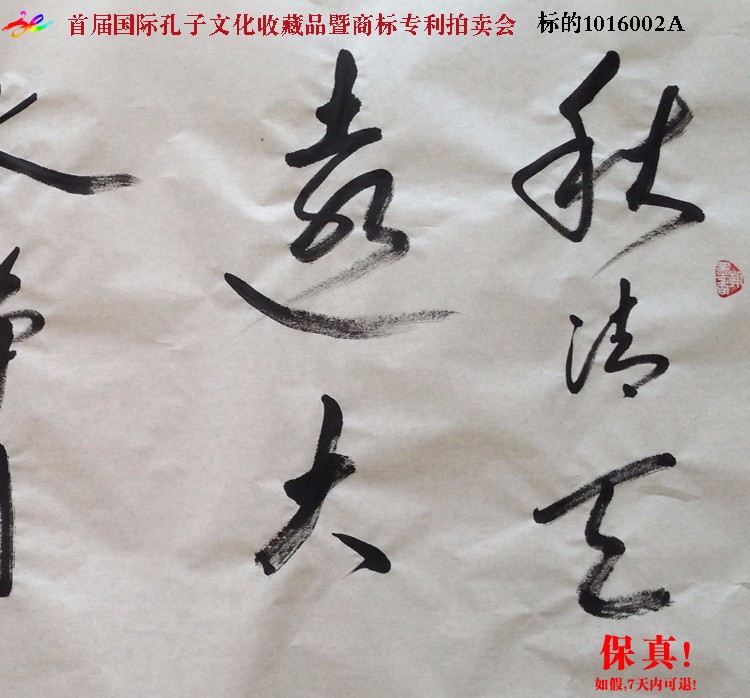 首届国际孔子文化收藏品暨商标专利拍卖会 标的1016002A
秋清天
遠大
保真!
如假,7天内可退!